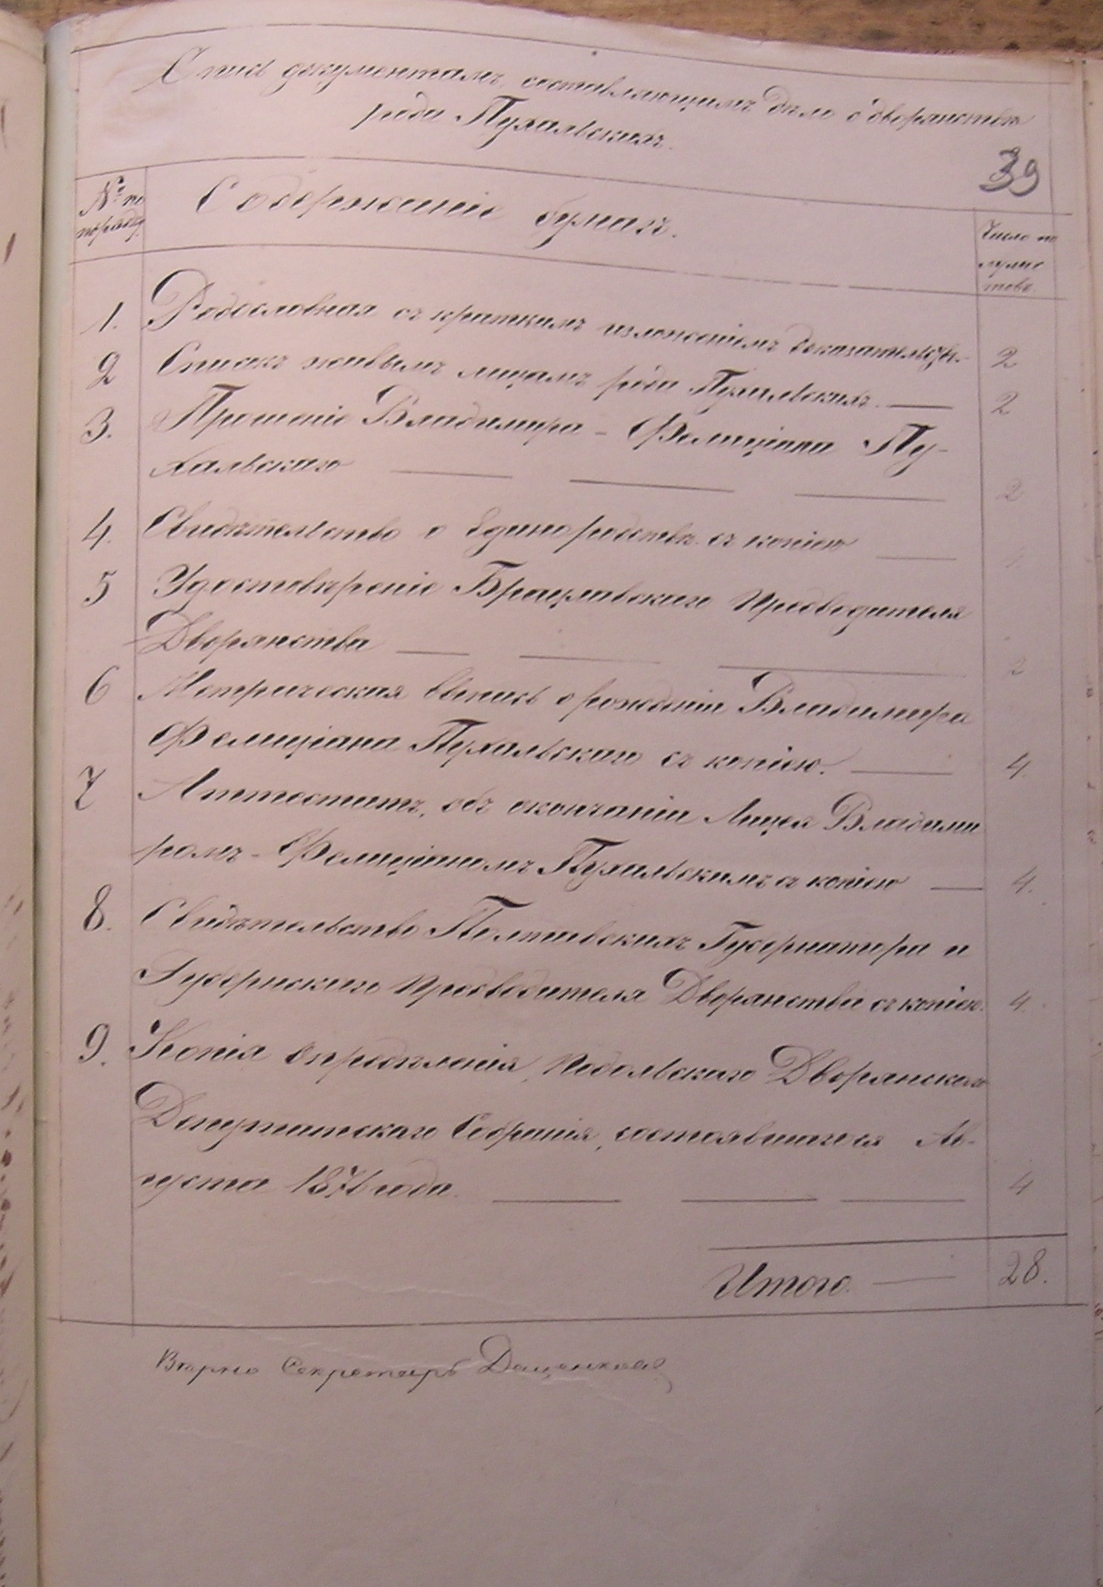 Опись документамъ, составляющимъ дѣло о дворянствѣ
рода Пухальскихъ.
39
№ по
порядку.
Содержаніе бумагъ.
Число по
лулис
товъ.
1. Родословная съ краткимъ изложеніемъ доказательствъ. 2
2 Списокъ живымъ лицамъ рода Пухальскихъ. — 2
3. Прошеніе Владимира - Фелиціана Пу-
хальскаго — — — 2
4. Свидѣтельство о единородствѣ съ копіею — 4
5 Удостовѣреніе Брацлавскаго Предводителя
Дворянства — — — 2
6 Метрическая выпись о рожденіи Владимира
Фелиціана Пухальскаго съ копіею. — 4.
7 Аттестатъ, объ окончаніи Лицея Владими
ромъ - Фелиціаномъ Пухальскимъ съ копіею — 4.
8. Свидѣтельство Полтавскихъ Губернатора и
Губернскаго Предводителя Дворянства съ копіею. 4.
9. Копія опредѣленія, Подольскаго Дворянскаго
Депутатскаго Собранія, состоявшагося Ав-
густа 1876 года. — — — 4
Итого — 28.
Вѣрно Секретарь